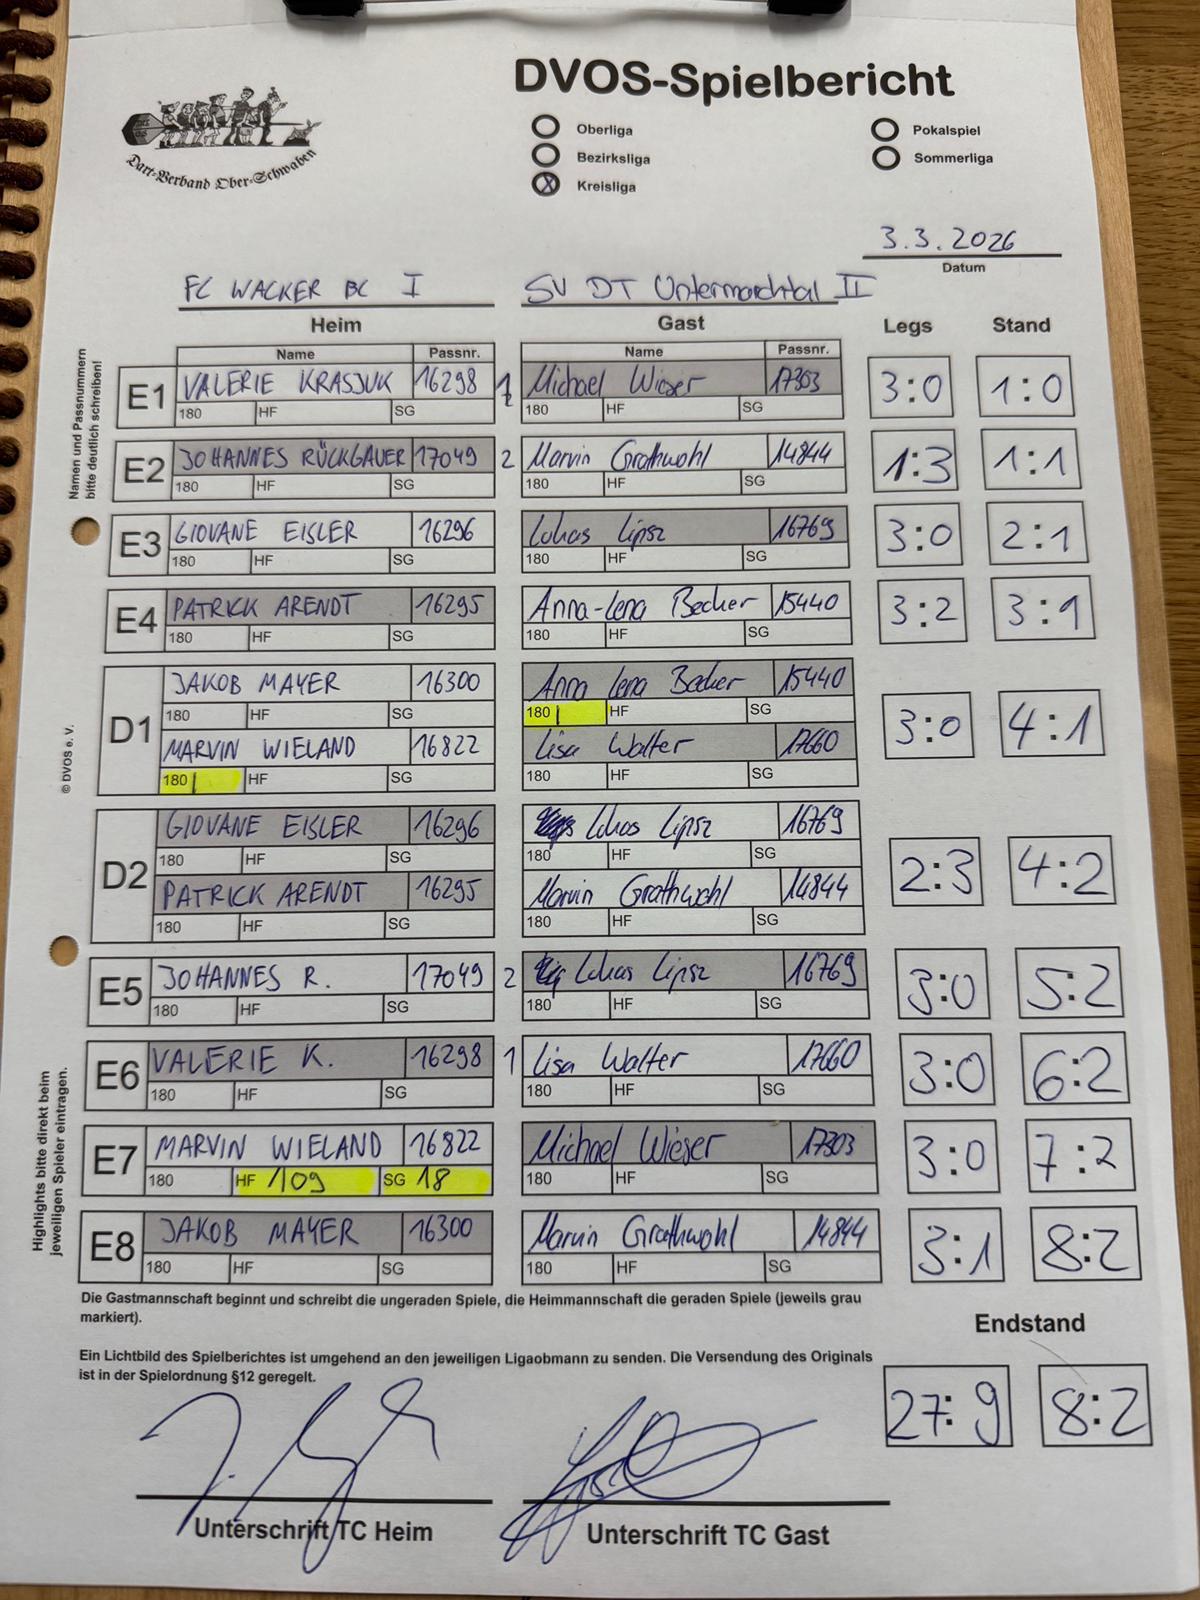 DVOS-Spielbericht
Dart-Verband Ober-Schwaben
Oberliga
Bezirksliga
X Kreisliga
Pokalspiel
Sommerliga
3.3.2026
Datum
FC WACKER BC I
SV DT Untermarchtal II
Heim
Gast
Legs
Stand
Namen und Passnummern
bitte deutlich schreiben!
Name Passnr.
Name Passnr.
E1 VALERIE KRASJUK 16298 1 Michael Wieser 17303 3:0 1:0
180 HF SG 180 HF SG
E2 JOHANNES RÜCKGAUER 17049 2 Marvin Grathwohl 14844 1:3 1:1
180 HF SG 180 HF SG
E3 GIOVANE EISLER 16296 Lukas Lipsz 16769 3:0 2:1
180 HF SG 180 HF SG
E4 PATRICK ARENDT 16295 Anna-Lena Becker 15440 3:2 3:1
180 HF SG 180 HF SG
D1 JAKOB MAYER 16300 Anna Lena Becker 15440 3:0 4:1
180 HF SG 180 | HF SG
MARVIN WIELAND 16822 Lisa Walter 17660
180 | HF SG 180 HF SG
© DVOS e. V.
D2 GIOVANE EISLER 16296 Lukas Lipsz 16769 2:3 4:2
180 HF SG 180 HF SG
PATRICK ARENDT 16295 Marvin Grathwohl 14844
180 HF SG 180 HF SG
E5 JOHANNES R. 17049 2 Lukas Lipsz 16769 3:0 5:2
180 HF SG 180 HF SG
E6 VALERIE K. 16298 1 Lisa Walter 17660 3:0 6:2
180 HF SG 180 HF SG
E7 MARVIN WIELAND 16822 Michael Wieser 17303 3:0 7:2
180 HF 109 SG 18 180 HF SG
E8 JAKOB MAYER 16300 Marvin Grathwohl 14844 3:1 8:2
180 HF SG 180 HF SG
Highlights bitte direkt beim
jeweiligen Spieler eintragen.
Die Gastmannschaft beginnt und schreibt die ungeraden Spiele, die Heimmannschaft die geraden Spiele (jeweils grau
markiert).
Endstand
Ein Lichtbild des Spielberichtes ist umgehend an den jeweiligen Ligaobmann zu senden. Die Versendung des Originals
ist in der Spielordnung §12 geregelt.
27:9 8:2
Unterschrift TC Heim
Unterschrift TC Gast